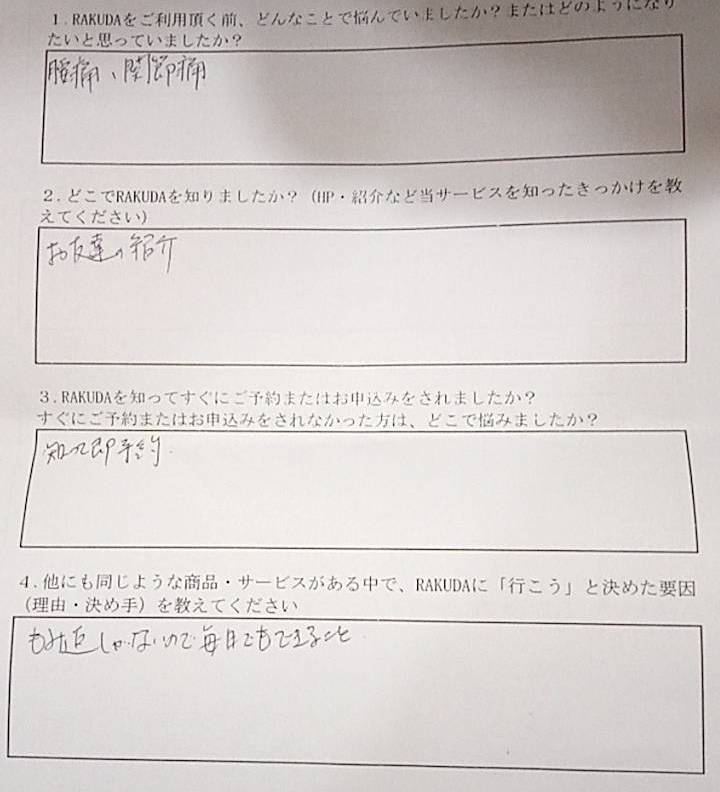 １.RAKUDAをご利用頂く前、どんなことで悩んでいましたか？またはどのようになり
たいと思っていましたか？
腰痛、関節痛
２.どこでRAKUDAを知りましたか？（HP・紹介など当サービスを知ったきっかけを教
えてください）
お友達の紹介
３.RAKUDAを知ってすぐにご予約またはお申込みをされましたか？
すぐにご予約またはお申込みをされなかった方は、どこで悩みましたか？
知って即予約.
４.他にも同じような商品・サービスがある中で、RAKUDAに「行こう」と決めた要因
（理由・決め手）を教えてください
もみ返しがないので毎日でもできること